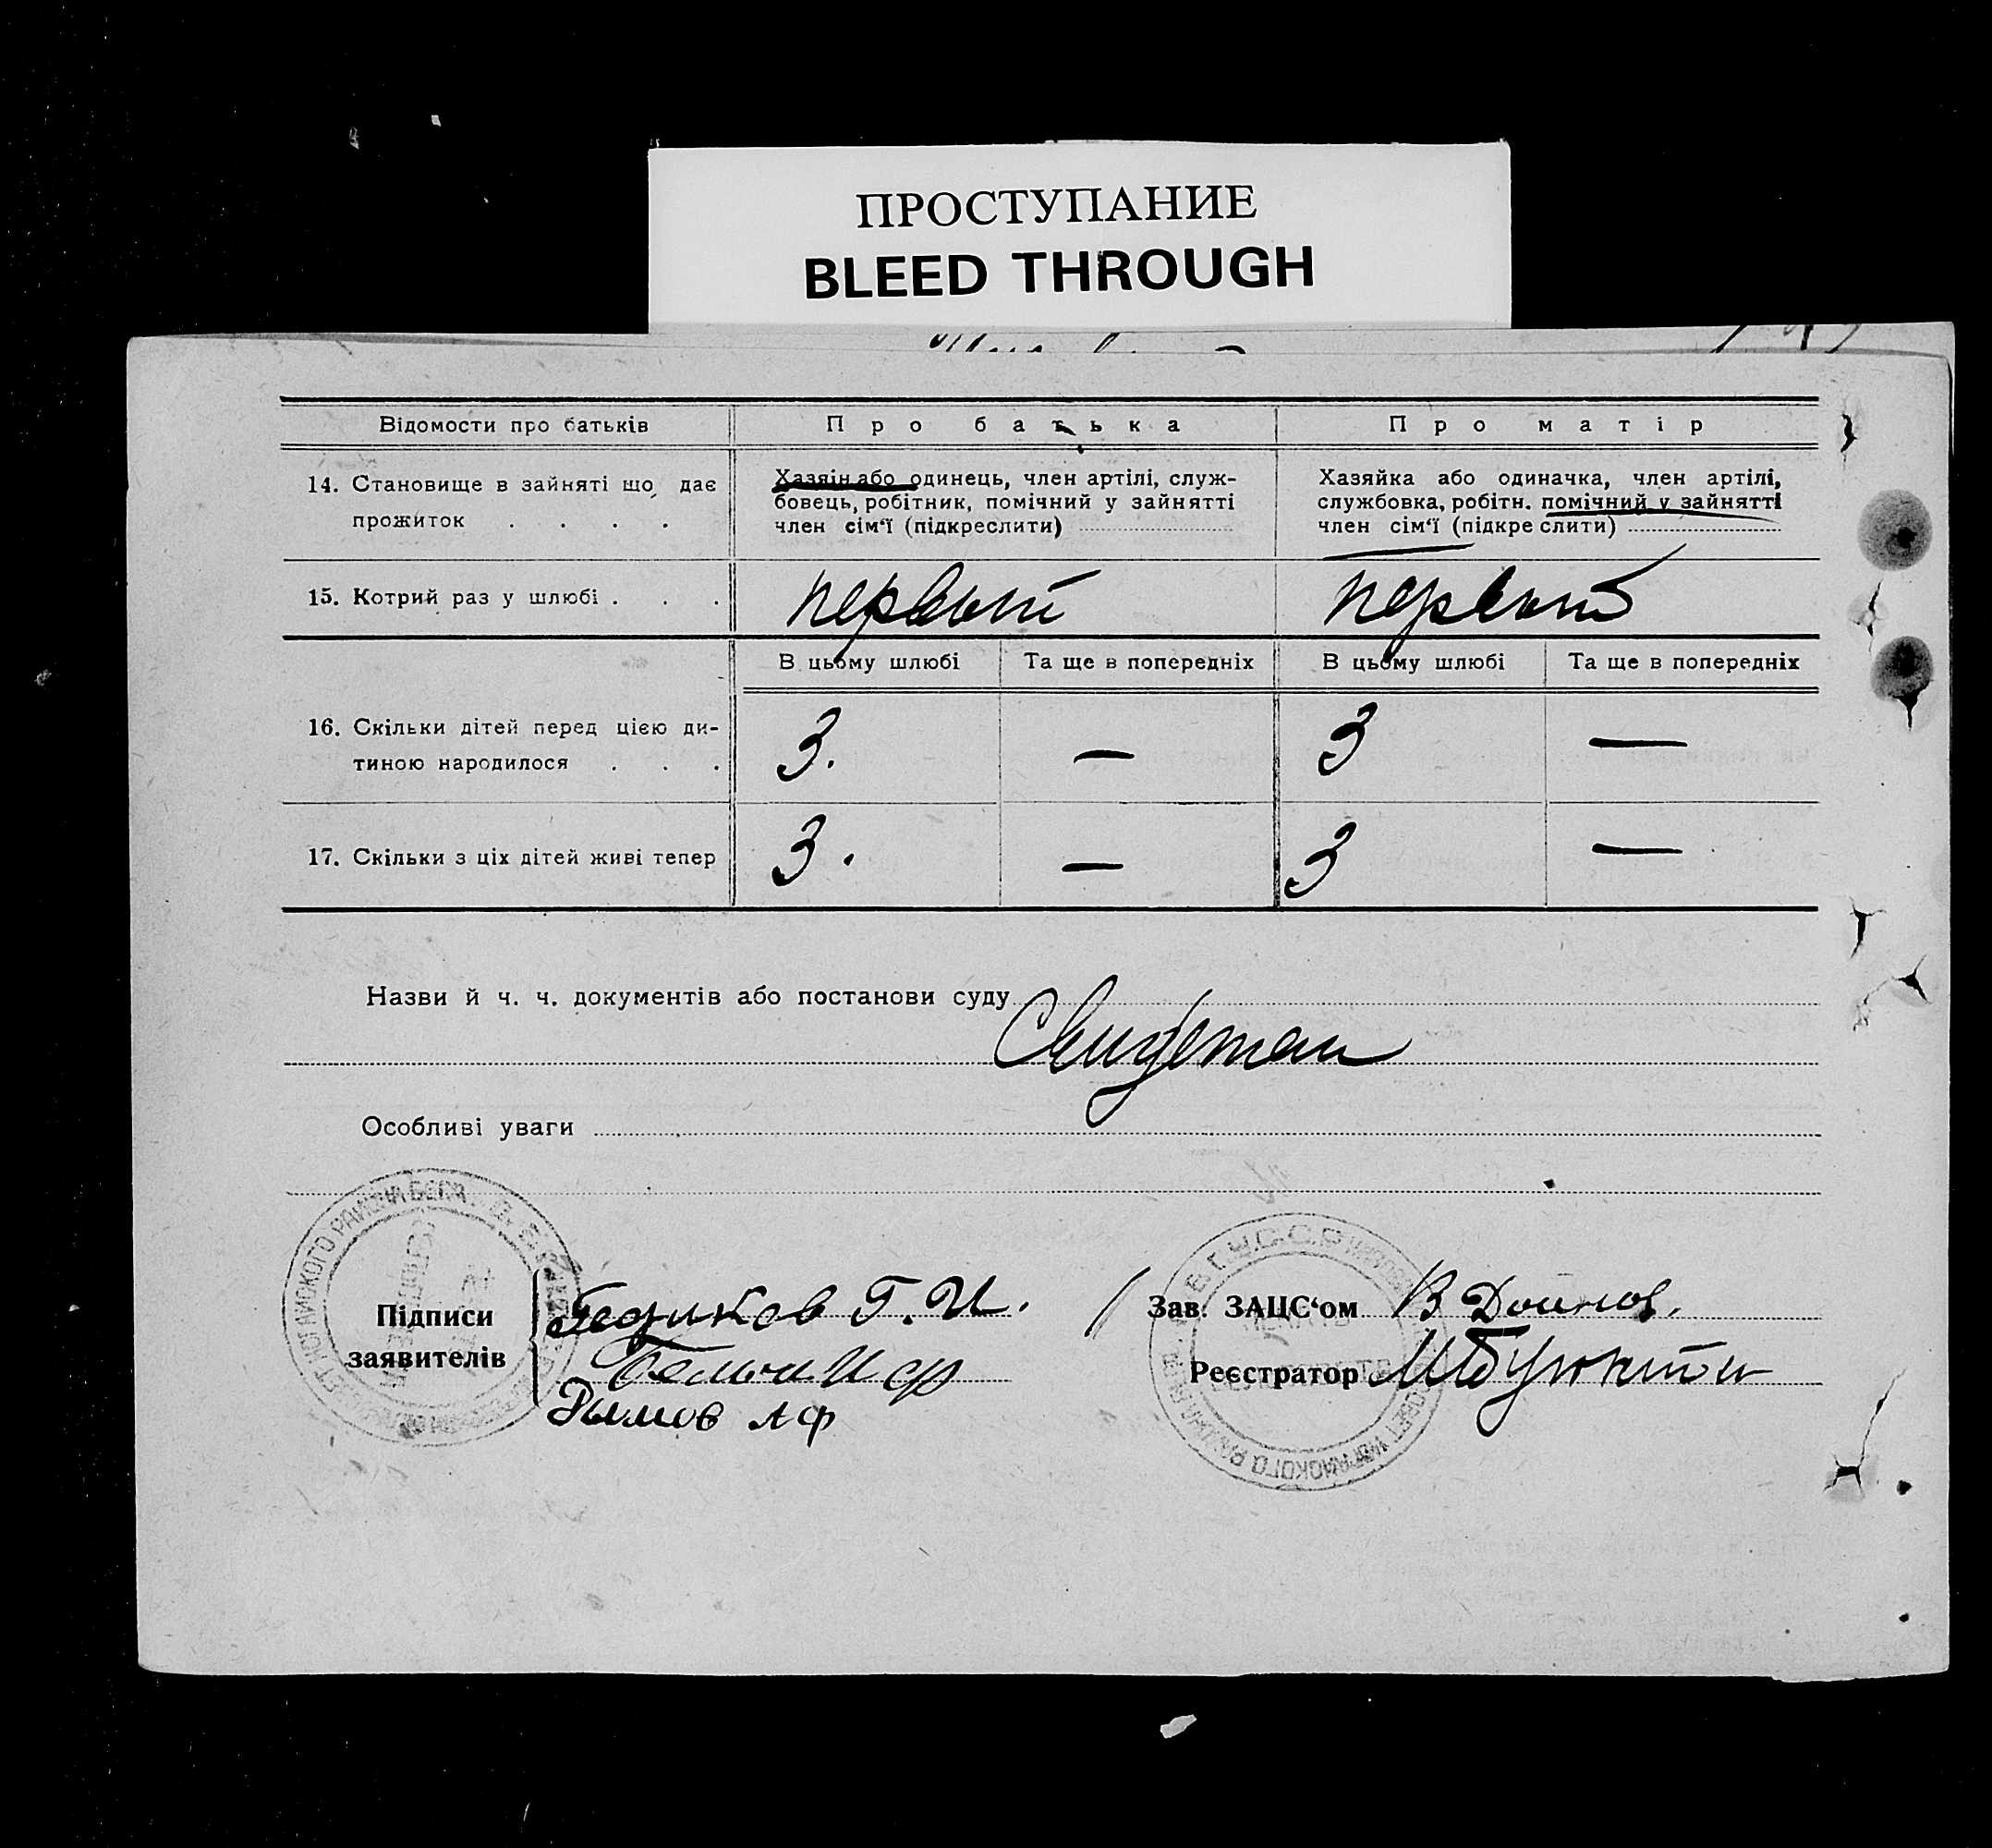 ПРОСТУПАНИЕ
BLEED THROUGH
Відомости про батьків
Про батька
Про матір
14. Становище в зайняті що дає
прожиток . . . .
Хазяін або одинець, член артілі, служ-
бовець, робітник, помічний у зайнятті
член сім'ї (підкреслити)
Хазяйка або одиначка, член артілі,
службовка, робітн. помічний у зайнятті
член сім'ї (підкреслити)
15. Котрий раз у шлюбі . . .
первый
первый
В цьому шлюбі
Та ще в попередніх
В цьому шлюбі
Та ще в попередніх
16. Скільки дітей перед цією ди-
тиною народилося . . .
3.
—
3
—
17. Скільки з ціх дітей живі тепер
3.
—
3
—
Назви й ч. ч. документів або постанови суду
Свидетели
Особливі уваги
Підписи
заявителів
Г. И.
Дымов А Ф
Зав. ЗАЦС'ом В Дойнов.
Реєстратор